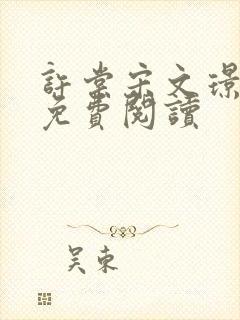 許棠宋文璟
免費閱讀
吴東